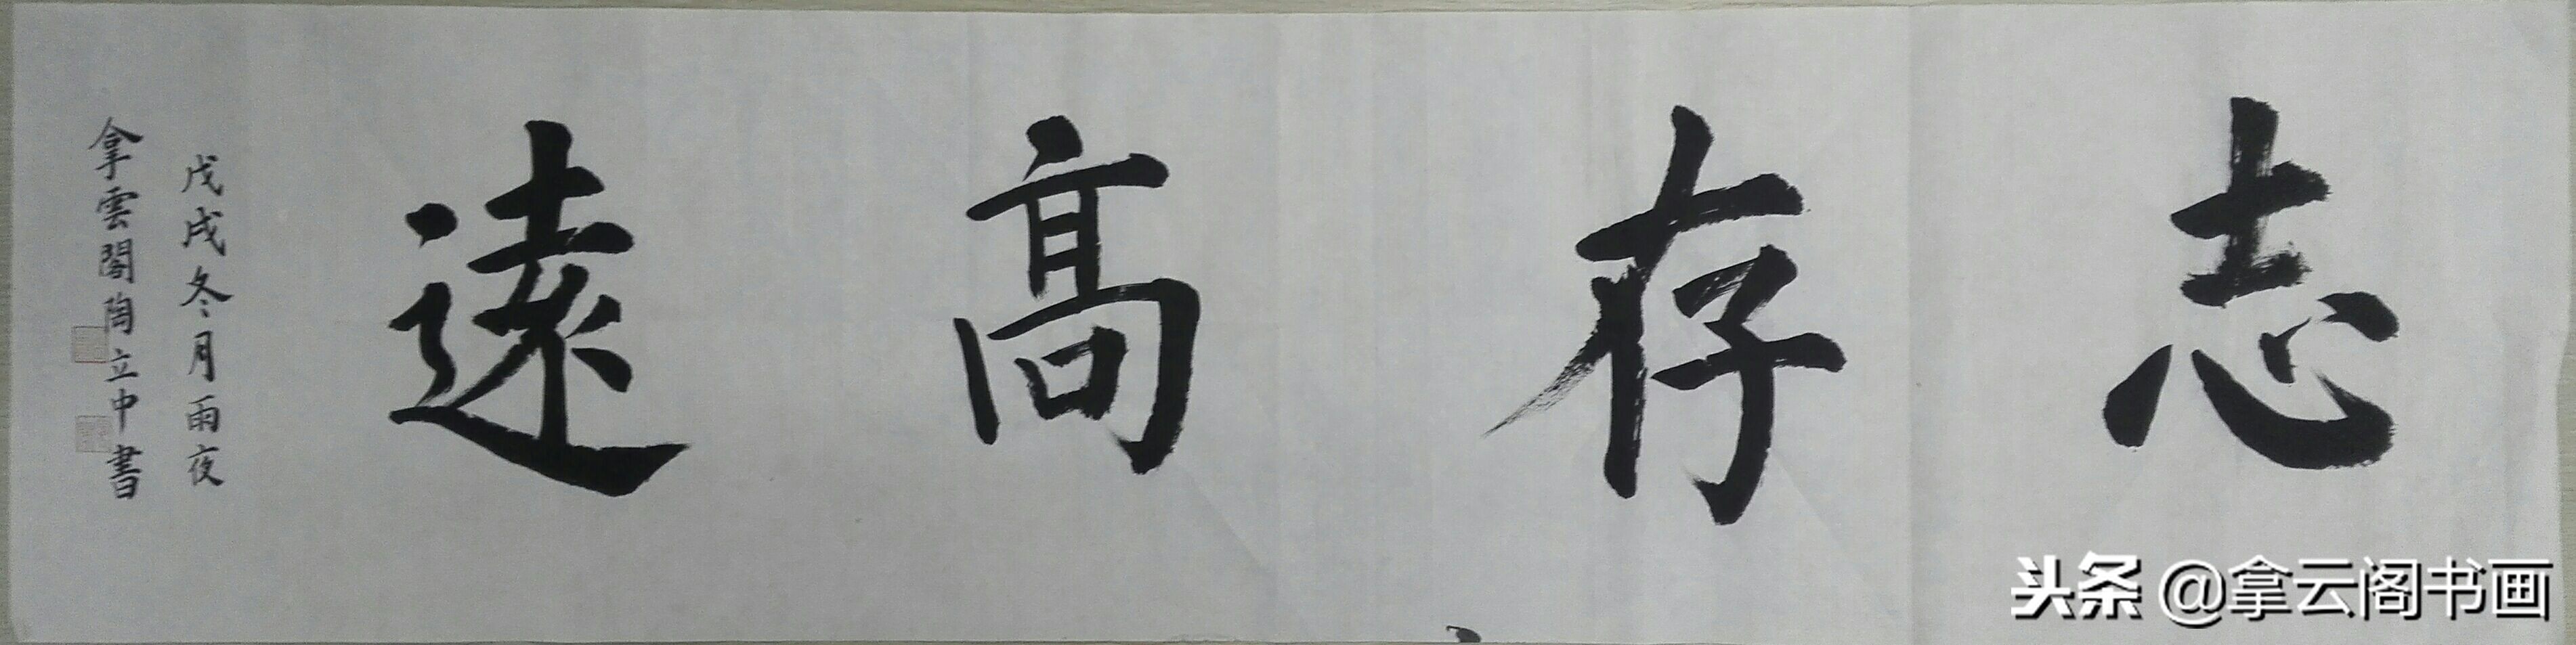 志存高遠
戊戌冬月雨夜
拿雲閣陶立中書
头条 @拿云阁书画